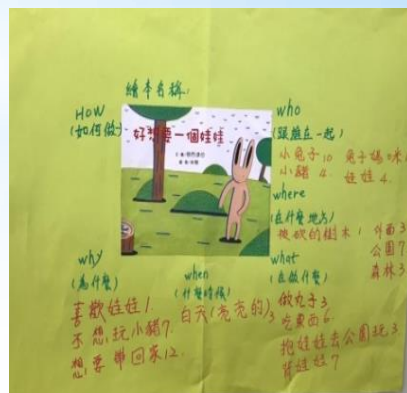 繪本名稱:
HOW
(如何做)
好想要一個娃娃
who
小兔子10 兔子媽咪
小豬 4. 娃娃 4.
where
(在什麼地方)
被砍的樹木1 外面3
公園7
森林3
why
(為什麼)
喜歡娃娃1.
不想玩小豬7.
想要帶回家12.
when
(什麼時候)
白天(亮亮的)3
what
(在做什麼)
做丸子3
吃東西6.
抱娃娃去公園玩3
背娃娃7